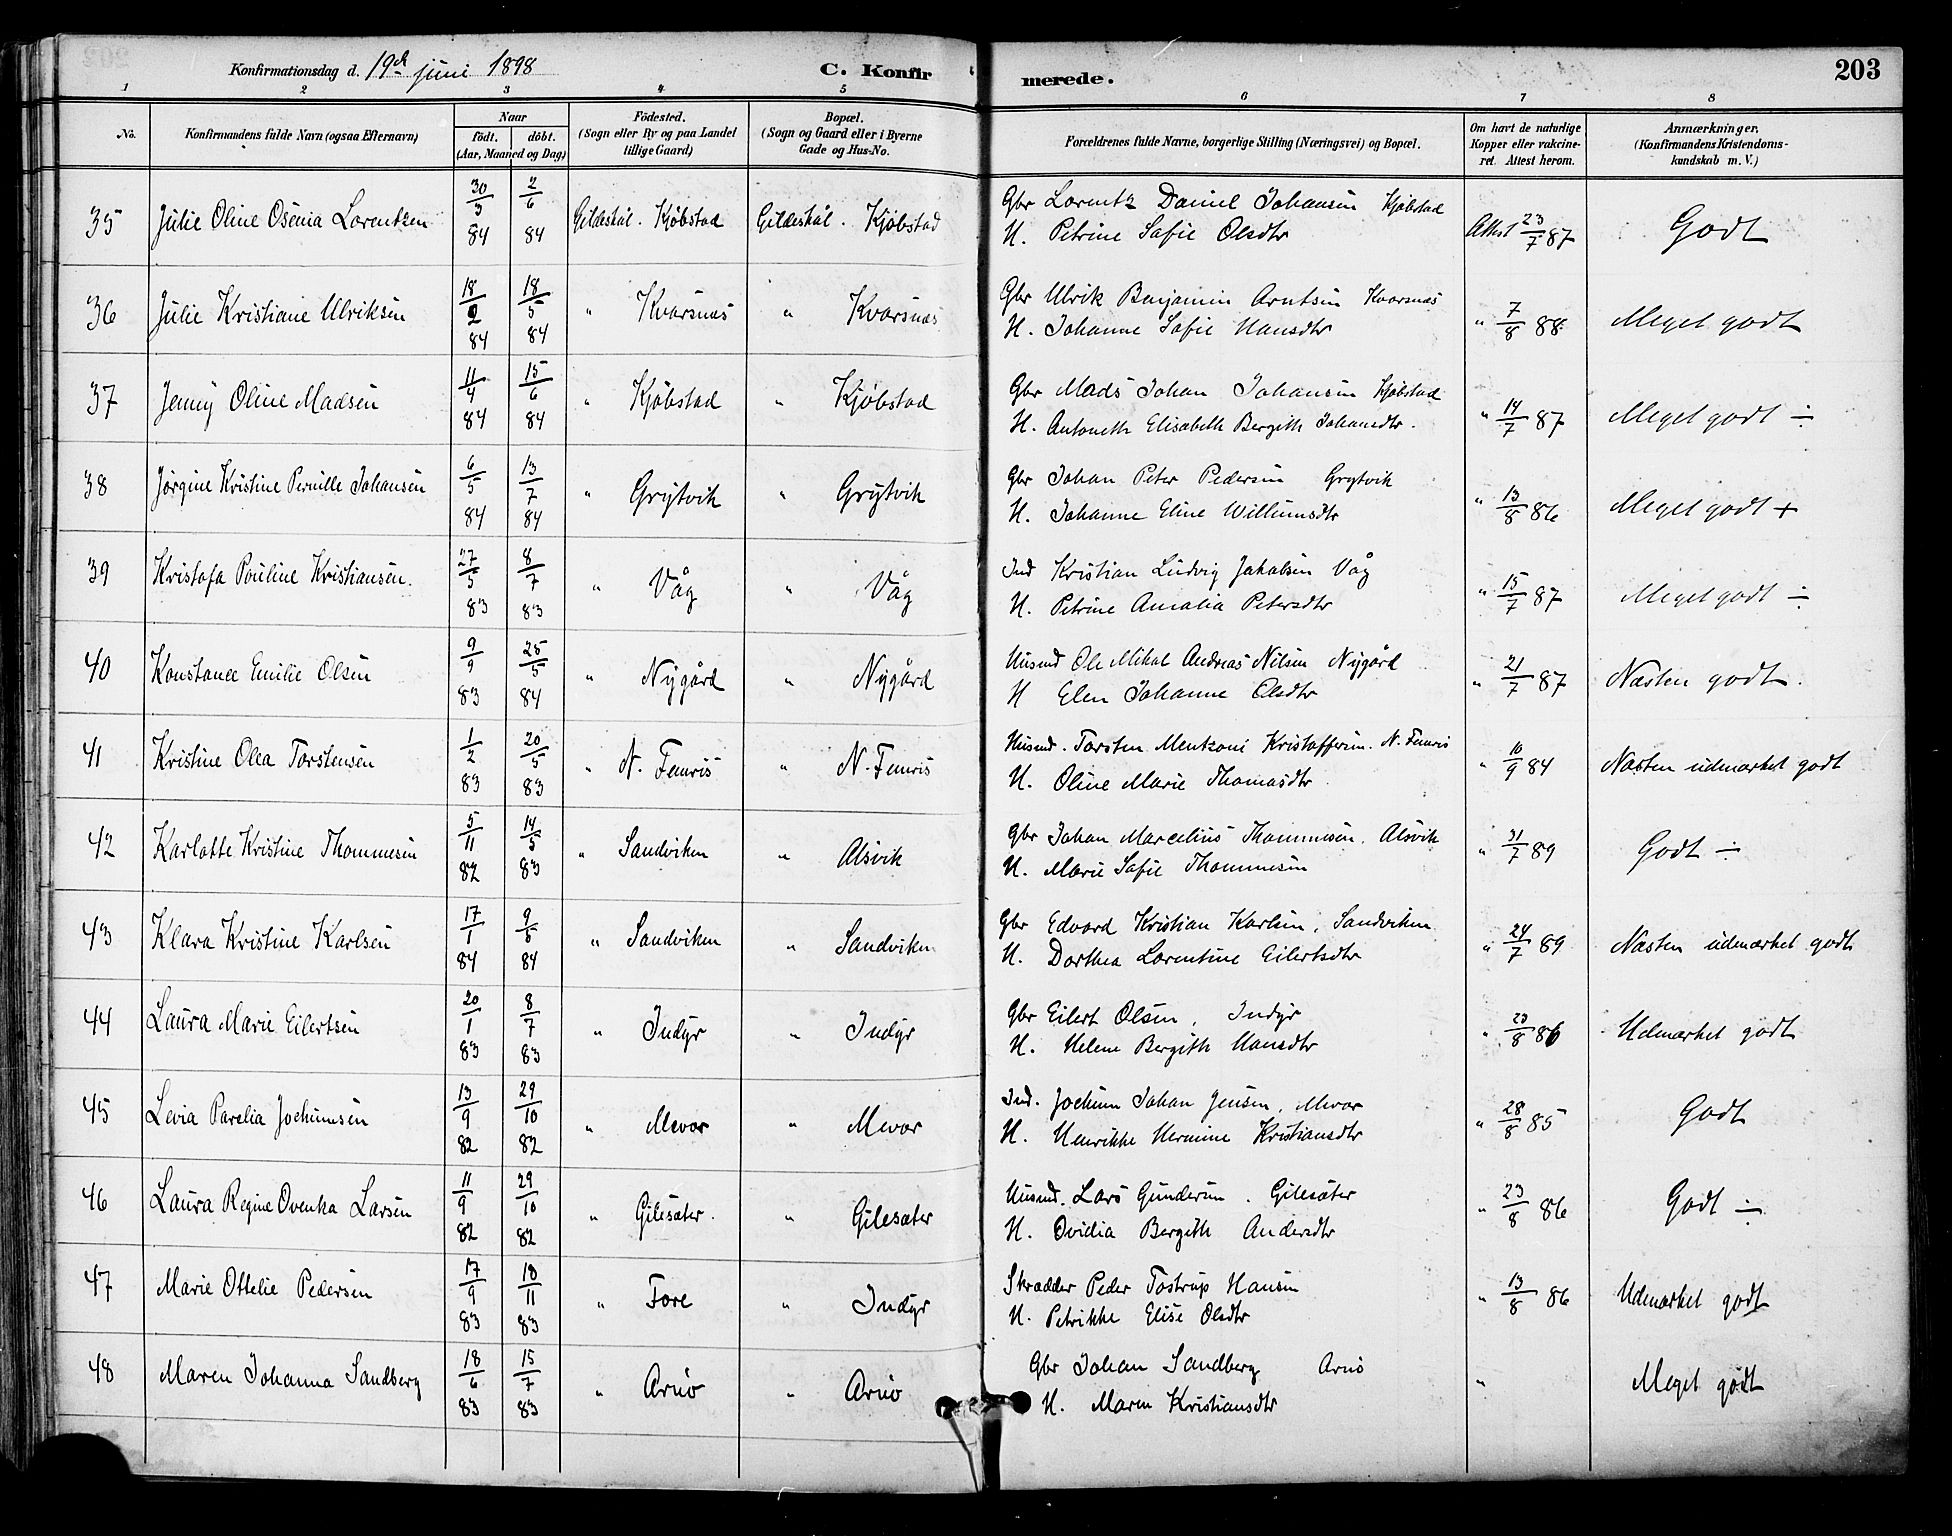 Konfirmationsdag d. 19de juni 1898 C. Konfirmerede. 203
1 2 3 4 5 6 7 8
No. Konfirmandens fulde Navn (ogsaa Efternavn) Naar födt. döbt. (Aar, Maaned og Dag) Födested. (Sogn eller By og paa Landet tillige Gaard) Bopæl. (Sogn og Gaard eller i Byerne Gade og Hus-No. Forældrenes fulde Navne, borgerlige Stilling (Næringsvei) og Bopæl. Om havt de naturlige Kopper eller vakcineret. Attest herom. Anmærkninger. (Konfirmandens Kristendomskundskab m. V.)
35 Julie Oline Osenia Lorentzen 30/3 84 2/6 84 Gildeskål. Kjöbstad Gildeskål. Kjöbstad Gbr Lorentz Daniel Johansen Kjöbstad Attest 23/7 87 Godt
H. Petrine Sofie Olsdtr
36 Julie Kristiane Ulriksen 18/2 84 18/5 84 " Kvarsnæs " Kvarsnæs Gbr Ulrik Benjamin Arntsen Kvarsnæs " 7/8 88 Meget godt
H. Johanne Sofie Hansdtr
37 Jenny Oline Madsen 11/4 84 15/6 84 " Kjöbstad " Kjöbstad Gbr Mads Johan Johansen Kjöbstad " 14/7 87 Meget godt ÷
H. Antoneth Elisabeth Bergith Johansdtr.
38 Jörgine Kristine Pernille Johansen 6/5 84 13/7 84 " Grytvik " Grytvik Gbr Johan Peter Pedersen Grytvik " 13/8 86 Meget godt +
H. Johanne Eline Williumsdtr
39 Kristofa Pouline Kristiansen. 27/5 83 8/7 83 " Våg " Våg Ind Kristian Ludvig Jakobsen Våg " 15/7 87 Meget godt ÷
H. Petrine Amalia Petersdtr
40 Konstance Emilie Olsen 9/9 83 25/5 84 " Nygård " Nygård Husmd Ole Mikal Andreas Nilsen Nygård " 21/7 87 Næsten godt.
H Elen Johanne Olsdtr
41 Kristine Olea Torstensen 1/2 83 20/5 83 " N. Femris " N. Femris Husmd. Torsten Mentzoni Kristoffersen. N. Femris " 10/9 84 Næsten udmærket godt
H. Oline Marie Thomasdtr
42 Karlotte Kristine Thommesen 5/11 82 14/5 83 " Sandviken " Alsvik Gbr Johan Marcelius Thommesen. Alsvik " 31/7 89 Godt ÷
H. Marie Sofie Thommesen
43 Klara Kristine Karlsen 17/1 84 9/5 84 " Sandviken " Sandviken Gbr Edvard Kristian Karlsen, Sandviken " 24/7 89 Næsten udmærket godt
H. Dorthea Lorentine Eilertsdtr
44 Laura Marie Eilertsen 20/1 83 8/7 83 " Indyr " Indyr Gbr Eilert Olsen, Indyr " 23/8 86 Udmærket godt
H. Helene Bergith Hansdtr
45 Levia Parelia Jochumsen 13/9 82 29/10 82 " Mevær " Mevær Ind. Jochum Johan Jensen, Mevær " 28/8 85 Godt
H. Henrikke Hermine Kristiansdtr
46 Laura Regine Ovenka Larsen 11/9 82 29/10 82 " Gilesæter. " Gilesæter Husmd. Lars Gundersen. Gilesæter " 23/8 86 Godt ÷
H. Ovidia Bergith Andersdtr
47 Marie Ottelie Pedersen 17/9 83 18/11 83 " Fore " Indyr Skrædder Peder Tostrup Hansen " 13/8 86 Udmærket godt
H. Petrikke Elise Olsdtr
48 Maren Johanna Sandberg 18/6 83 15/7 83 " Arnö " Arnö Gbr Johan Sandberg Arnö " Meget godt
H. Maren Kristiansdtr